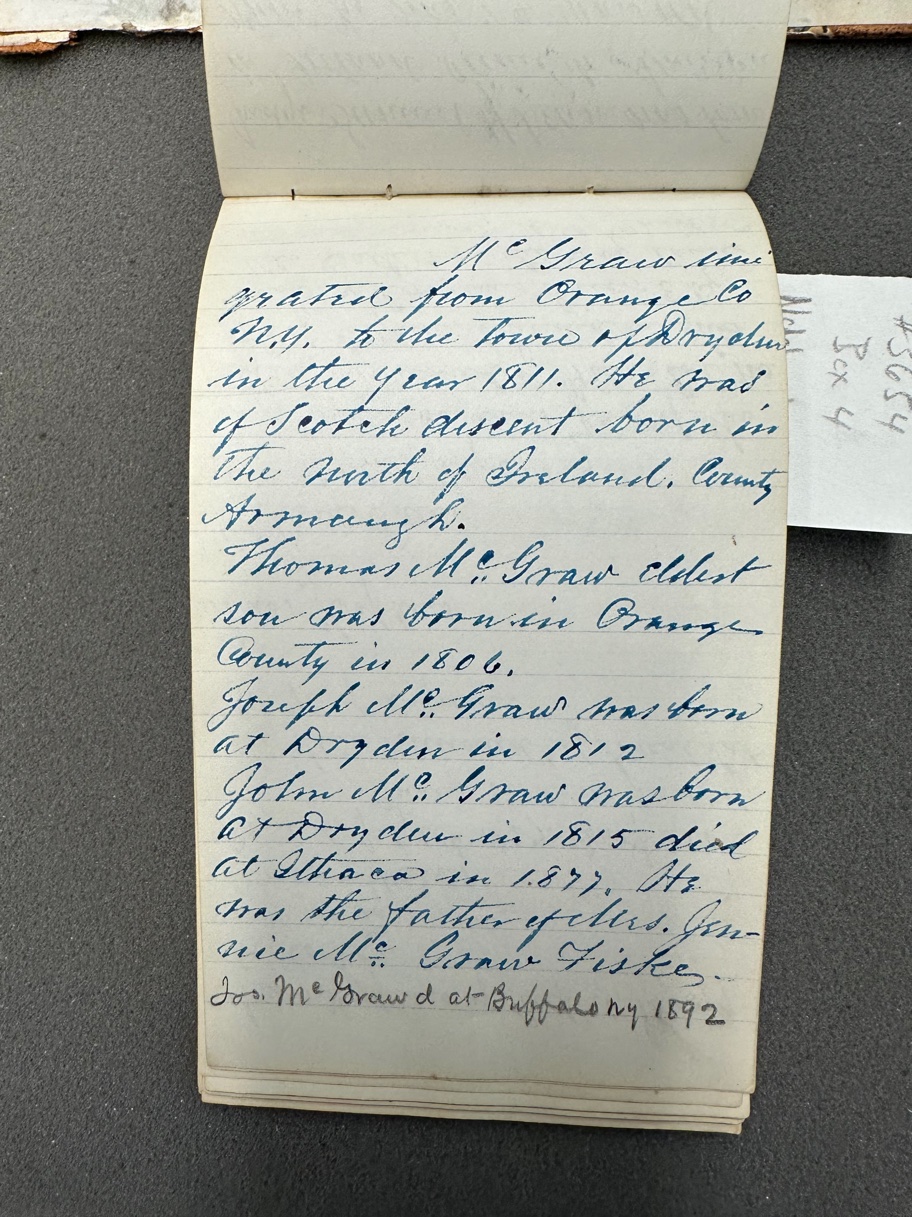 Mc Graw imi
grated from Orange Co
N.Y. to the town of Dryden
in the year 1811. He was
of Scotch descent born in
the north of Ireland. County
Armaugh.
Thomas Mc. Graw eldest
son was born in Orange
County in 1806.
Joseph Mc. Graw was born
at Dryden in 1812
John Mc. Graw was born
at Dryden in 1815 died
at Ithaca in 1877. He
was the father of Mrs. Jen-
nie Mc. Graw Fiske.
Jos. Mc Graw d at Buffalo NY 1892
#3654
Box 4